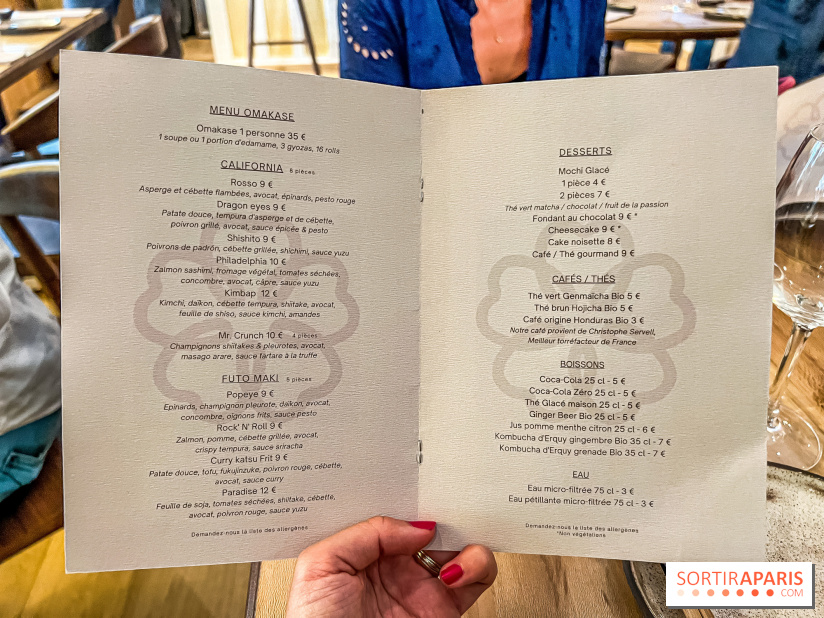 MENU OMAKASE
Omakase 1 personne 35 €
1 soupe ou 1 portion d'edamame, 3 gyozas, 16 rolls
CALIFORNIA 8 pièces
Rosso 9 €
Asperge et cébette flambées, avocat, épinards, pesto rouge
Dragon eyes 9 €
Patate douce, tempura d'asperge et de cébette,
poivron grillé, avocat, sauce épicée & pesto
Shishito 9 €
Poivrons de padrón, cébette grillée, shichimi, sauce yuzu
Philadelphia 10 €
Zalmon sashimi, fromage végétal, tomates séchées,
concombre, avocat, câpre, sauce yuzu
Kimbap 12 €
Kimchi, daïkon, cébette tempura, shiitake, avocat,
feuille de shiso, sauce kimchi, amandes
Mr. Crunch 10 € 4 pièces
Champignons shiitakes & pleurotes, avocat,
masago arare, sauce tartare à la truffe
FUTO MAKI 5 pièces
Popeye 9 €
Epinards, champignon pleurote, daïkon, avocat,
concombre, oignons frits, sauce pesto
Rock' N' Roll 9 €
Zalmon, pomme, cébette grillée, avocat,
crispy tempura, sauce sriracha
Curry katsu Frit 9 €
Patate douce, tofu, fukujinzuke, poivron rouge, cébette,
avocat, sauce curry
Paradise 12 €
Feuille de soja, tomates séchées, shiitake, cébette,
avocat, poivron rouge, sauce yuzu
Demandez-nous la liste des allergènes
DESSERTS
Mochi Glacé
1 pièce 4 €
2 pièces 7 €
Thé vert matcha / chocolat / fruit de la passion
Fondant au chocolat 9 € *
Cheesecake 9 € *
Cake noisette 8 €
Café / Thé gourmand 9 €
CAFÉS / THÉS
Thé vert Genmaïcha Bio 5 €
Thé brun Hojicha Bio 5 €
Café origine Honduras Bio 3 €
Notre café provient de Christophe Servell,
Meilleur torréfacteur de France
BOISSONS
Coca-Cola 25 cl - 5 €
Coca-Cola Zéro 25 cl - 5 €
Thé Glacé maison 25 cl - 5 €
Ginger Beer Bio 25 cl - 5 €
Jus pomme menthe citron 25 cl - 6 €
Kombucha d'Erquy gingembre Bio 35 cl - 7 €
Kombucha d'Erquy grenade Bio 35 cl - 7 €
EAU
Eau micro-filtrée 75 cl - 3 €
Eau pétillante micro-filtrée 75 cl - 3 €
Demandez-nous la liste des allergènes
*Non végétaliens
SORTIRAPARIS
.COM